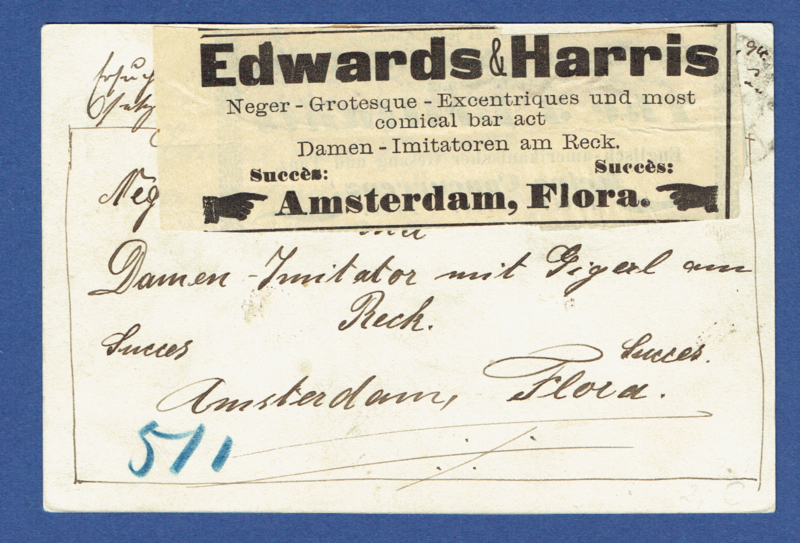 Edwards & Harris
Neger - Grotesque - Excentriques und most
comical bar act
Damen - Imitatoren am Reck.
Succès: Succès:
Amsterdam, Flora.
Neg
Damen - Imitator mit Gigerl am
Reck.
Succes Succes.
Amsterdam, Flora.
5/1